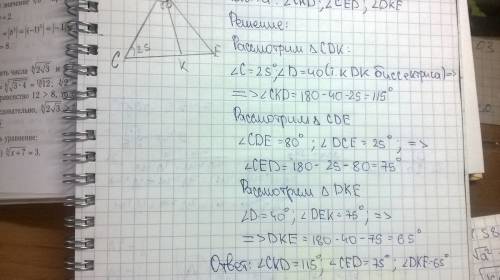 ∠CKD; ∠CED; ∠DKE
Решение:
Рассмотрим ΔCDK:
∠C=25°; ∠D=40(т.к DK биссектриса)=>
=> ∠CKD=180-40-25=115°
Рассмотрим ΔCDE
∠CDE=80°; ∠DCE=25°; =>
∠CED=180-25-80=75°
Рассмотрим ΔDKE
∠D=40°; ∠DEK=75°; =>
=> DKE=180-40-75=65°
Ответ: ∠CKD=115°, ∠CED=75°; ∠DKE-65°
C 25 K E
= 2.
> 8.
∛3
равенство 12 > 8,
уравнение:
x + 7 = 3.